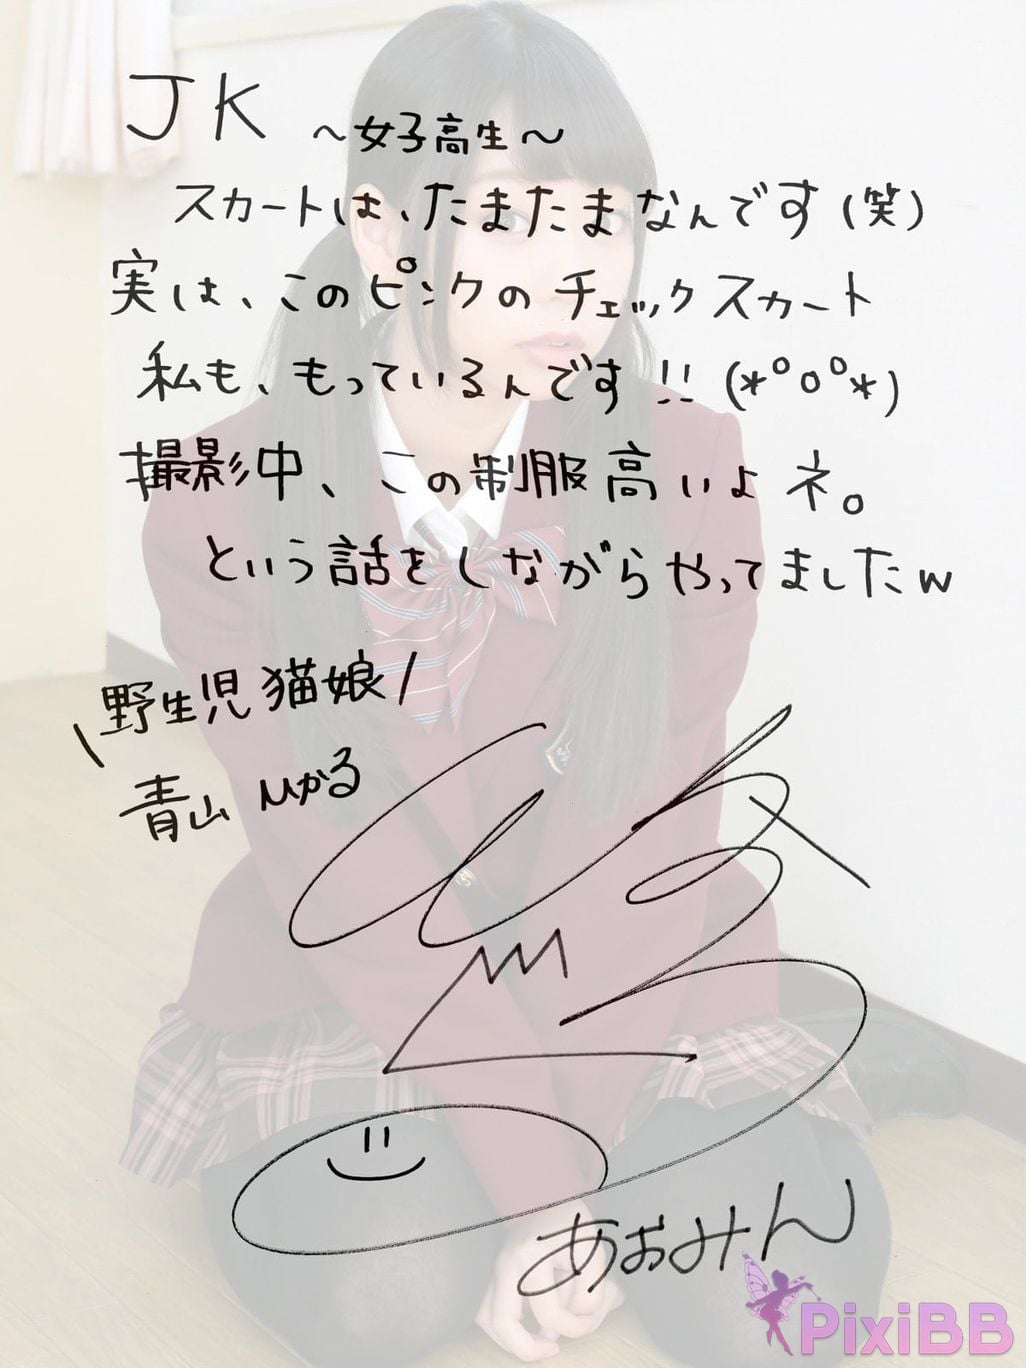 JK ～女子高生～
スカートは、たまたまなんです(笑)
実は、このピンクのチェックスカート
私も、もっているんです!!(*°o°*)
撮影中、この制服高いよネ。
という話をしながらやってましたw
\野生児猫娘/
青山ひかる
あおみん
PixiBB